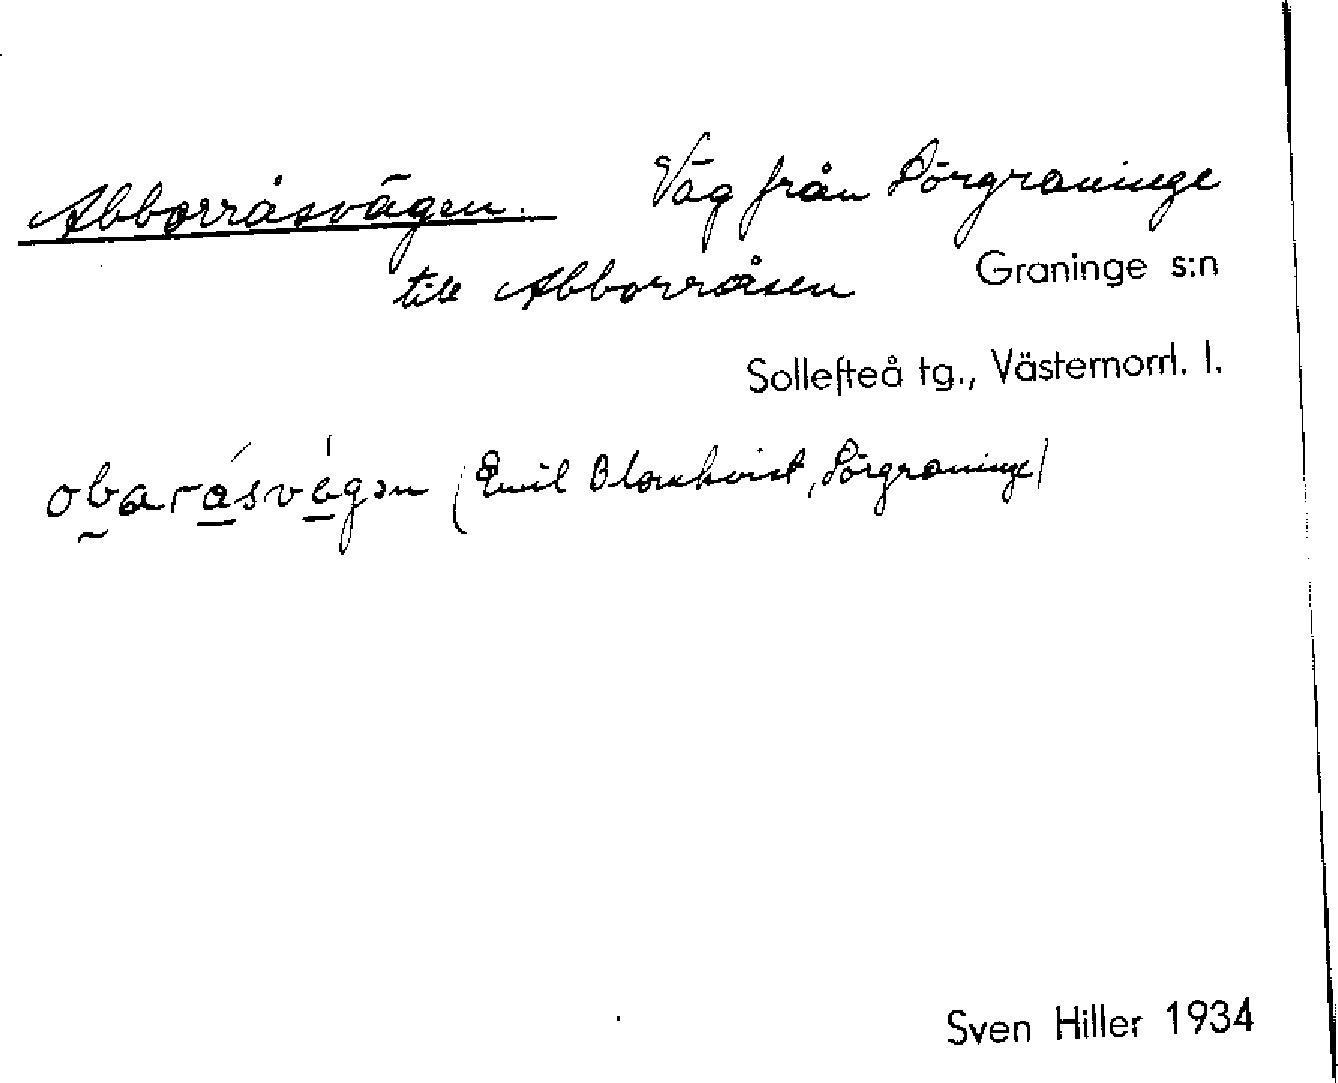 Abborråsvägen. Väg från Sörgraninge
till Abborråsen Graninge s:n
Sollefteå tg., Västernorrl. l.
(Emil Blomkvist, Sörgraninge)
Sven Hiller 1934